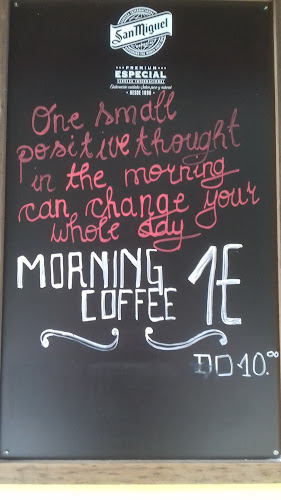 San Miguel
PREMIUM
ESPECIAL
CERVEZA INTERNACIONAL
DESDE 1890
One small
positive thought
in the morning
can change your
whole day
MORNING
COFFEE 1E
DO 10.00